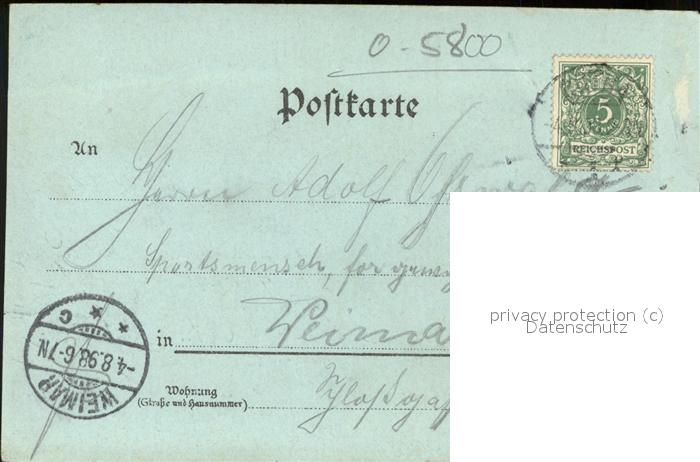 0-5800
Postkarte
5
PFENNIG
REICHSPOST
An
Herrn Adolf
Sportsmensch, for
privacy protection (c)
Datenschutz
in Weima
Wohnung
(Straße und Hausnummer)
WEIMAR
-4.8.98.6-7N.
* * C